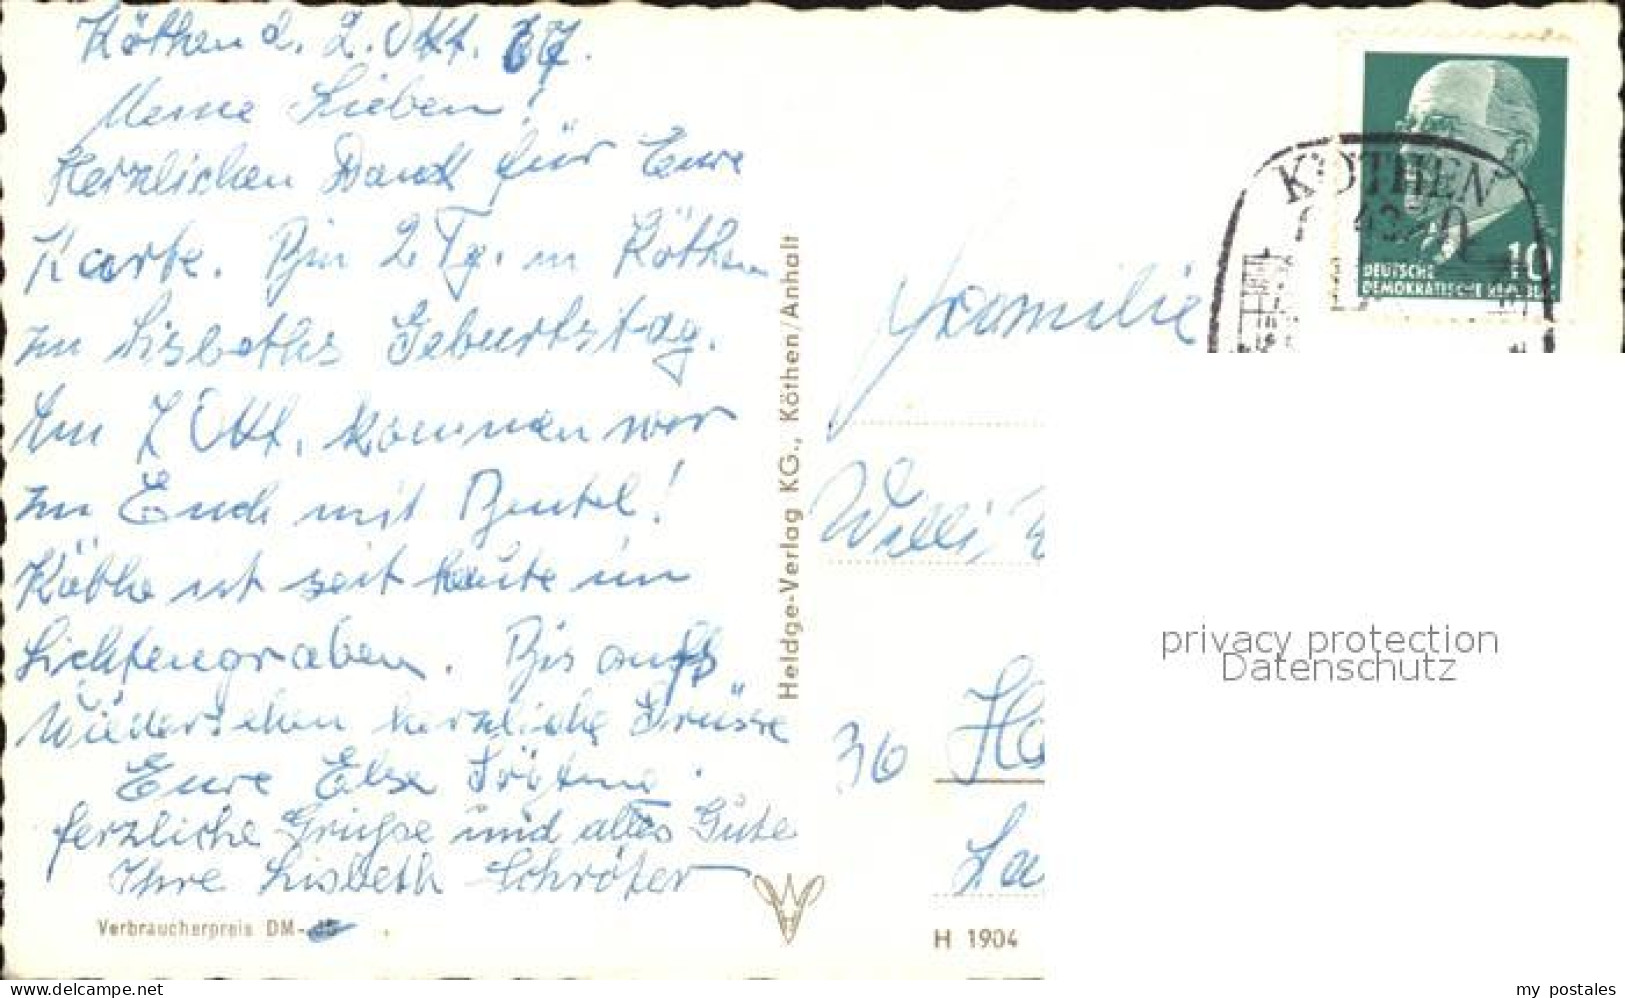 Köthen d. 2. Okt. 67.
Meine Lieben!
Herzlichen Dank für Eure
Karte. Bin 2 Tg. in Köthen
zu Lisbeths Geburtstag.
Am 7 Okt. kommen wir
zu Euch mit Beutel!
Käthe ist seit heute im
Lichtengraben. Bis aufs
Wiedersehen herzliche Grüsse
Eure Else
herzliche Grüße und alles Gute
Ihre Lisbeth Schröter
Verbraucherpreis DM
Heldge-Verlag KG., Köthen/Anhalt
KÖTHEN
10
DEUTSCHE
DEMOKRATISCHE REPUBLIK
Familie
Willi
36
H 1904
privacy protection
Datenschutz
www.delcampe.net
my_postales